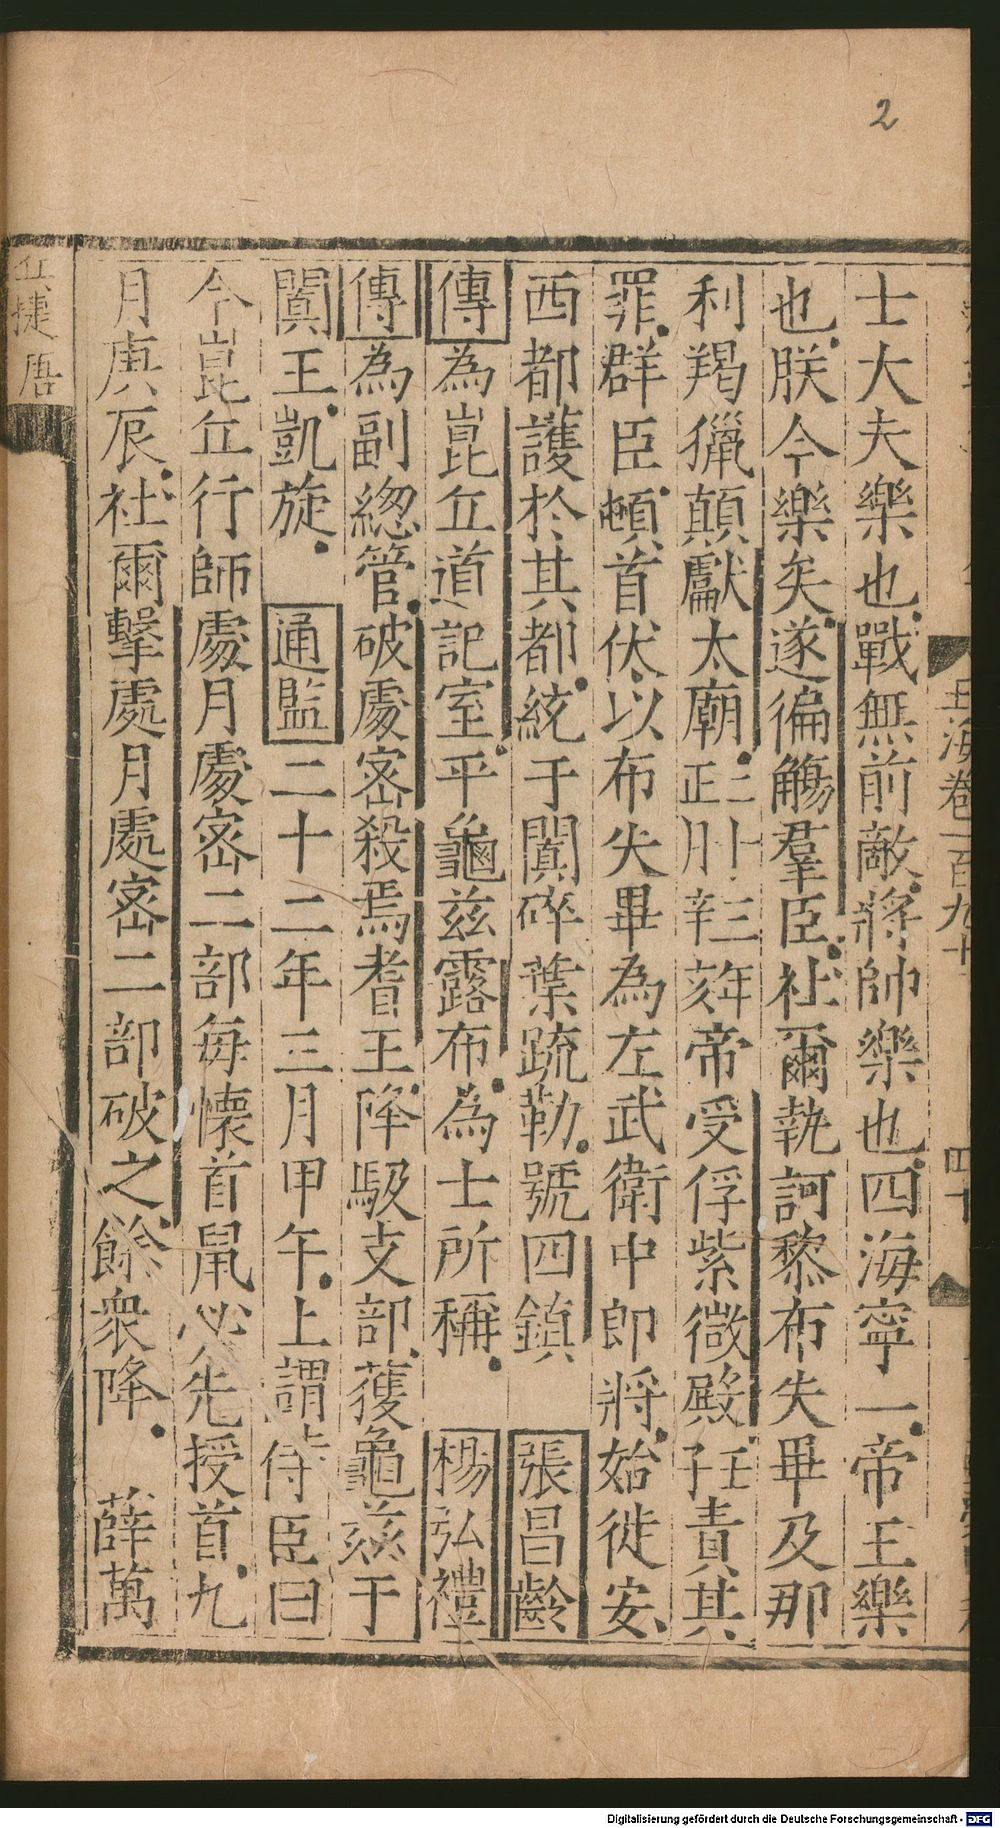 2
玉海卷一百九十
四十
士大夫樂也戰無前敵將帥樂也四海寧一帝王樂
也朕今樂矣遂徧觴羣臣社爾執訶黎布失畢及那
利羯獵顛獻太廟二十三年正月辛亥帝受俘紫微殿云云責其
罪群臣頓首伏以布失畢為左武衛中郎將始徙安
西都護於其都統于闐碎葉疏勒號四鎮 張昌齡
傳為崑丘道記室平龜兹露布為士所稱 楊弘禮
傳為副緫管破處宻殺焉耆王降馺支部獲龜兹于
闐王凱旋 通監二十二年三月甲午上謂侍臣曰
今崑丘行師處月處宻二部每懷首鼠必先授首九
月庚辰社爾擊處月處宻二部破之餘衆降 薛萬
兵捷唐
Digitalisierung gefördert durch die Deutsche Forschungsgemeinschaft - DFG